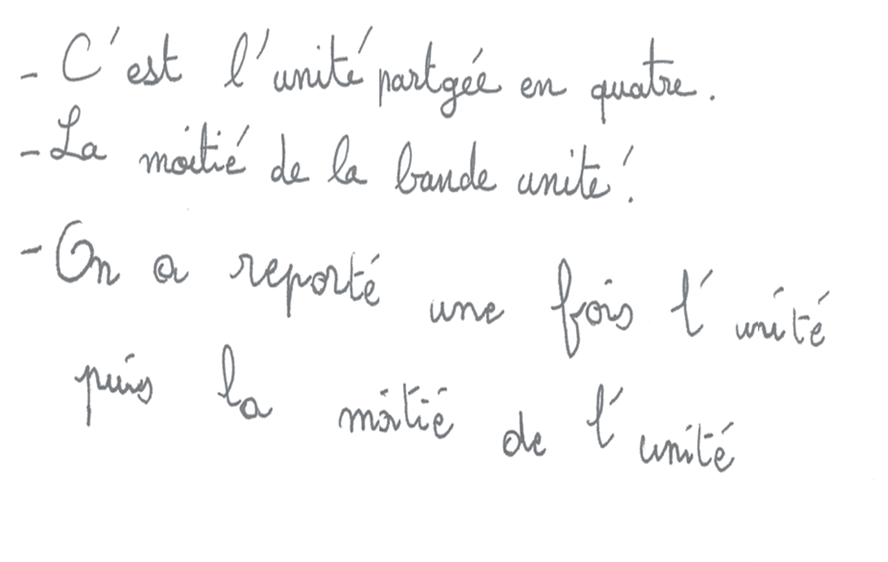 - C'est l'unité partgée en quatre.
- La moitié de la bande unité !
- On a reporté une fois l'unité
puis la moitié de l'unité